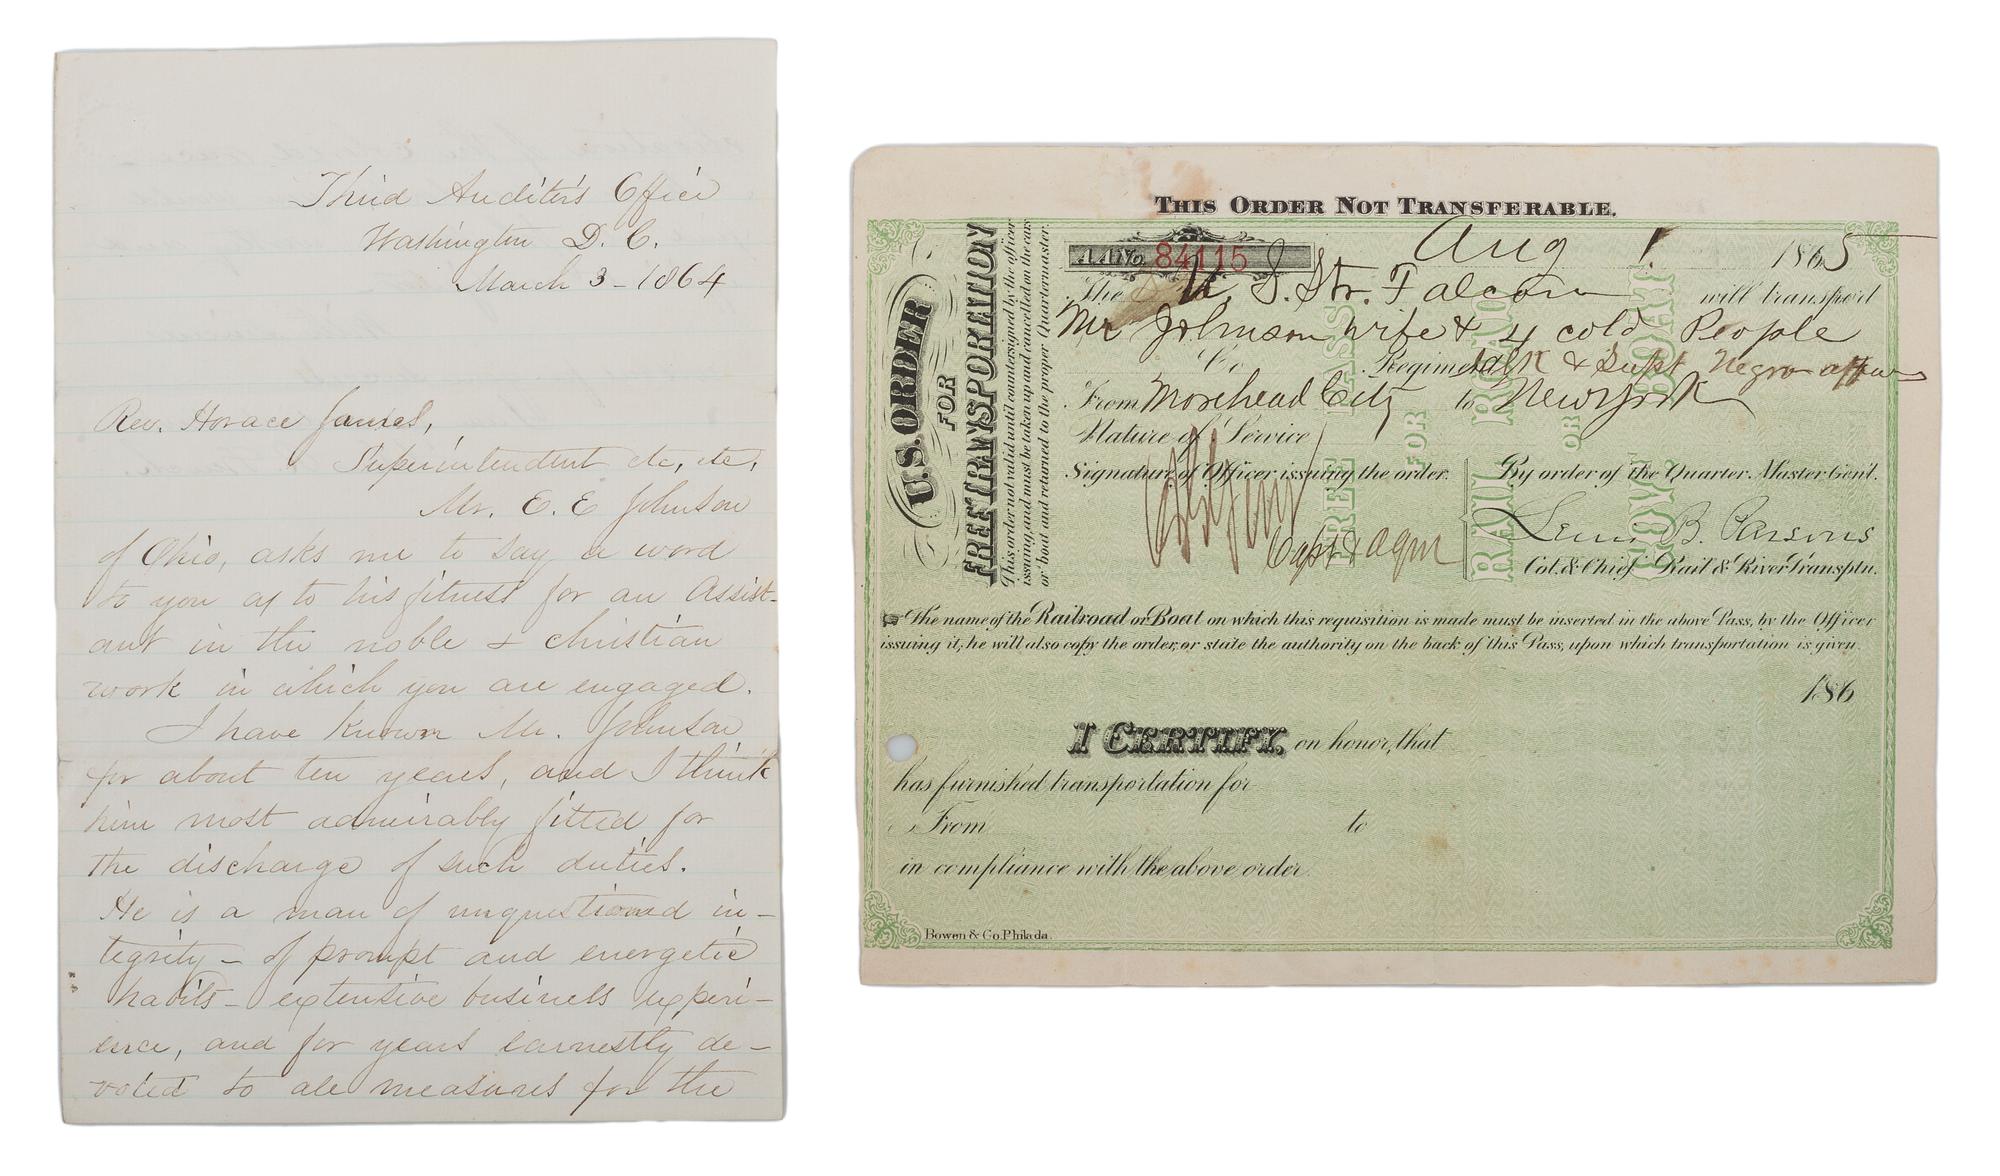 Third Auditor's Office
Washington D. C.
March 3 - 1864
Rev. Horace James,
Superintendent etc, etc,
Mr. E. E Johnson
of Ohio, asks me to say a word
to you as to his fitness for an Assist-
ant in the noble & christian
work in which you are engaged.
I have known Mr. Johnson
for about ten years, and I think
him most admirably fitted for
the discharge of such duties.
He is a man of unquestioned in-
tegrity - of prompt and energetic
habits - extensive business experi-
ence, and for years earnestly de-
voted to all measures for the
THIS ORDER NOT TRANSFERABLE.
U.S. ORDER
FOR
FREE TRANSPORTATION
This order not valid until countersigned by the officer
issuing, and must be taken up and cancelled on the cars
or boat and returned to the proper Quartermaster.
AA No. 84115
Aug 1. 1865
The U. S. Str. Falcon will transport
Mr Johnson wife & 4 cold People
Co. Regiment & Supt Negro affairs
From Morehead City to New York
Nature of Service
Signature of Officer issuing the order.
Capt & aqm
By order of the Quarter. Master Genl.
Lewis B. Parsons
Col. & Chief Rail & River Transptn.
FREE PASS
FOR
RAIL ROAD
OR
GOVT. BOAT
The name of the Railroad or Boat on which this requisition is made must be inserted in the above Pass, by the Officer
issuing it; he will also copy the order, or state the authority on the back of this Pass, upon which transportation is given.
186
I CERTIFY, on honor, that
has furnished transportation for
From to
in compliance with the above order.
Bowen & Co. Philada.